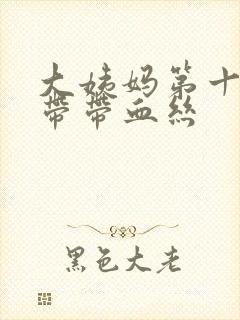 大姨妈第十
带带血丝
黑色大老